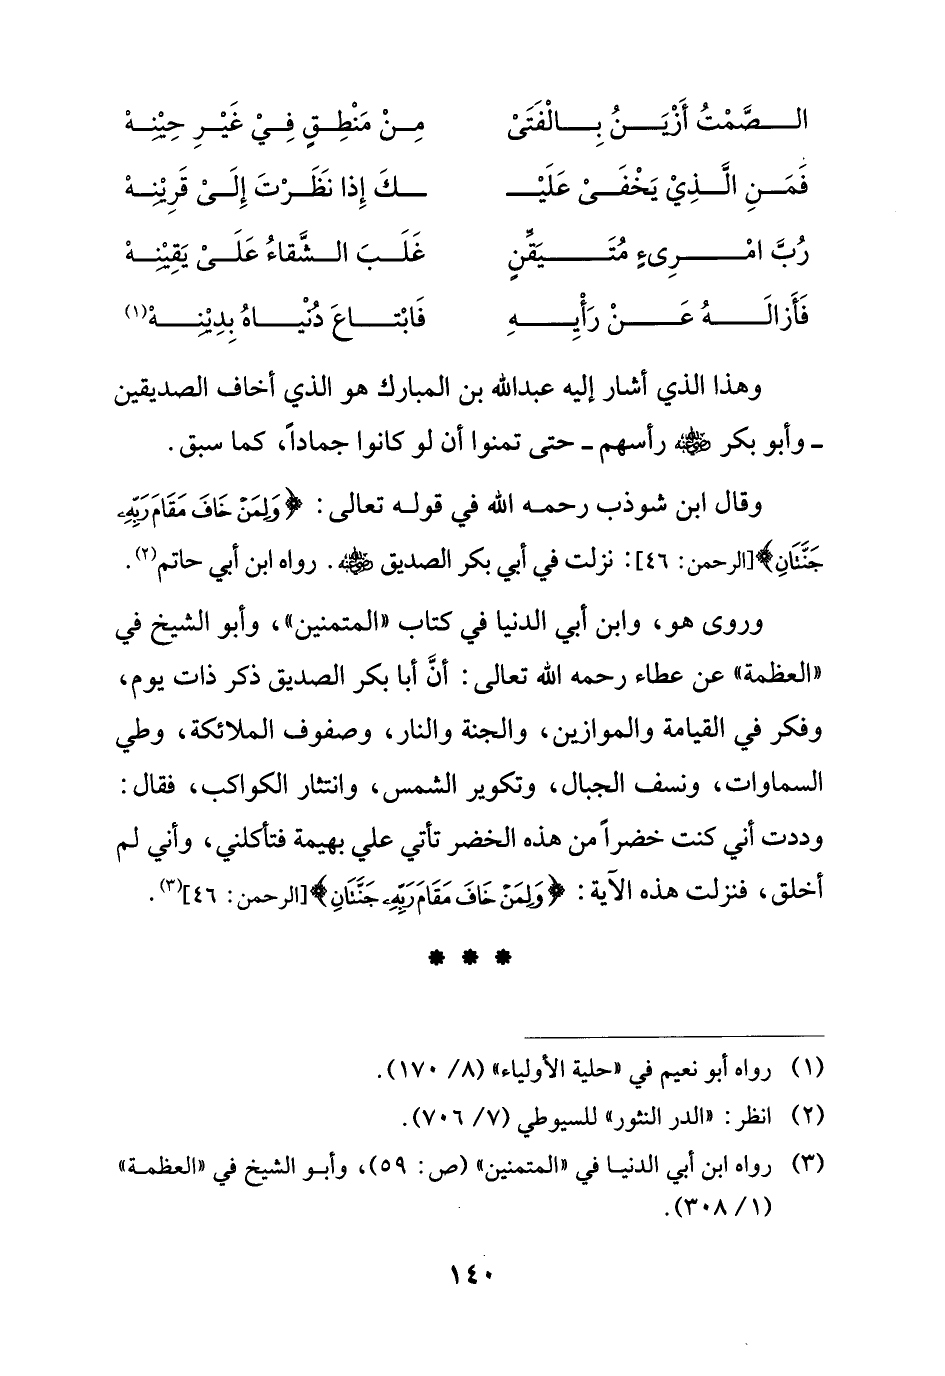 الصَّمْتُ أَزْيَنُ بِالْفَتَىْ مِنْ مَنْطِقٍ فِيْ غَيْرِ حِيْنِهْ
فَمَنِ الَّذِيْ يَخْفَىْ عَلَيْـ ـكَ إِذا نَظَرْتَ إِلَىْ قَرِيْنِهْ
رُبَّ امْرِىءٍ مُتَيَقِّنٍ غَلَبَ الشَّقاءُ عَلَىْ يَقِيْنِهْ
فَأَزالَهُ عَنْ رَأْيِهِ فَابْتاعَ دُنْياهُ بِدِيْنِهْ(١)
وهذا الذي أشار إليه عبدالله بن المبارك هو الذي أخاف الصديقين
ـ وأبو بكر رضي الله عنه رأسهم ـ حتى تمنوا أن لو كانوا جماداً، كما سبق.
وقال ابن شوذب رحمه الله في قوله تعالى: ﴿وَلِمَنْ خَافَ مَقَامَ رَبِّهِۦ
جَنَّتَانِ﴾[الرحمن: ٤٦]: نزلت في أبي بكر الصديق رضي الله عنه. رواه ابن أبي حاتم(٢).
وروى هو، وابن أبي الدنيا في كتاب «المتمنين»، وأبو الشيخ في
«العظمة» عن عطاء رحمه الله تعالى: أنَّ أبا بكر الصديق ذكر ذات يوم،
وفكر في القيامة والموازين، والجنة والنار، وصفوف الملائكة، وطي
السماوات، ونسف الجبال، وتكوير الشمس، وانتثار الكواكب، فقال:
وددت أني كنت خضراً من هذه الخضر تأتي علي بهيمة فتأكلني، وأني لم
أخلق، فنزلت هذه الآية: ﴿وَلِمَنْ خَافَ مَقَامَ رَبِّهِۦ جَنَّتَانِ﴾[الرحمن: ٤٦](٣).
* * *
(١) رواه أبو نعيم في «حلية الأولياء» (٨/ ١٧٠).
(٢) انظر: «الدر النثور» للسيوطي (٧/ ٧٠٦).
(٣) رواه ابن أبي الدنيا في «المتمنين» (ص: ٥٩)، وأبو الشيخ في «العظمة»
(١/ ٣٠٨).
١٤٠